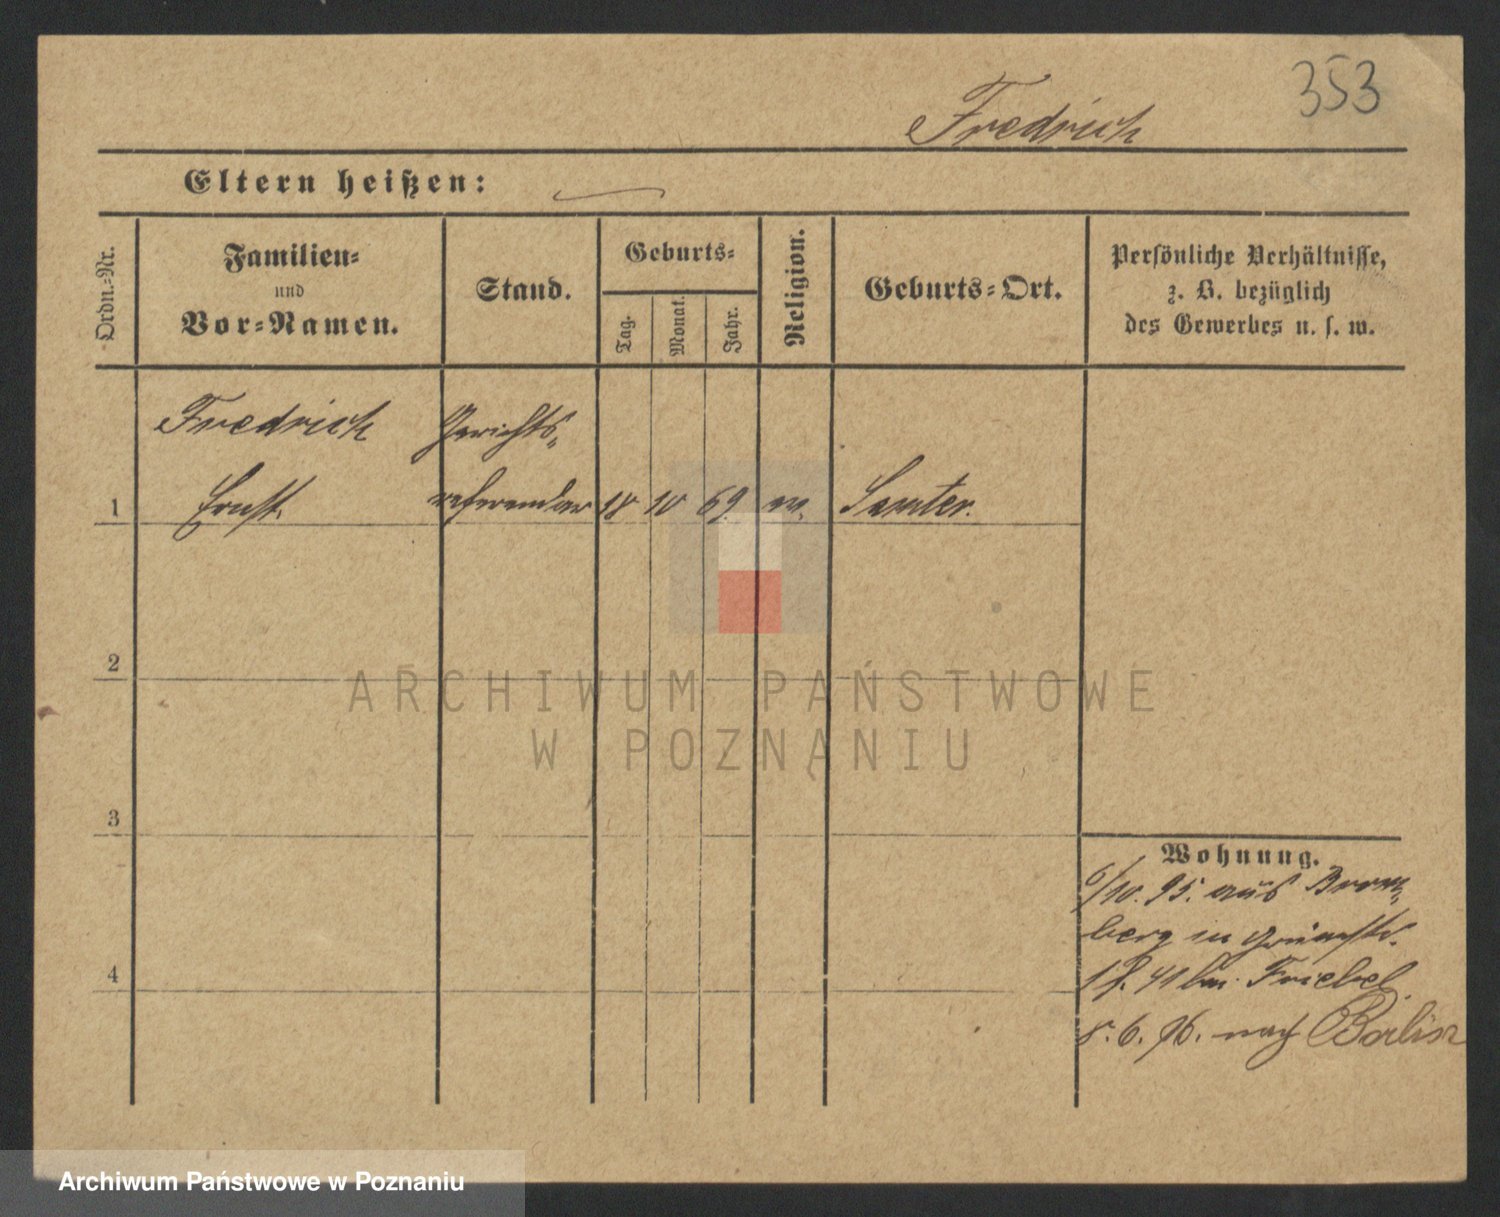 353
Fredrich
Eltern heißen:
Ordn.-Nr.
Familien-
und
Vor-Namen.
Stand.
Geburts-
Tag.
Monat.
Jahr.
Religion.
Geburts-Ort.
Persönliche Verhältnisse,
z. B. bezüglich
des Gewerbes u. s. w.
Fredrich Gerichts-
1 Ernst. referendar 18 10 69. Samter.
2
3
4
Wohnung.
6/10. 95. aus Brom-
berg in
41 bei Friebel
8. 6. 96. nach
ARCHIWUM PAŃSTWOWE
W POZNANIU
Archiwum Państwowe w Poznaniu